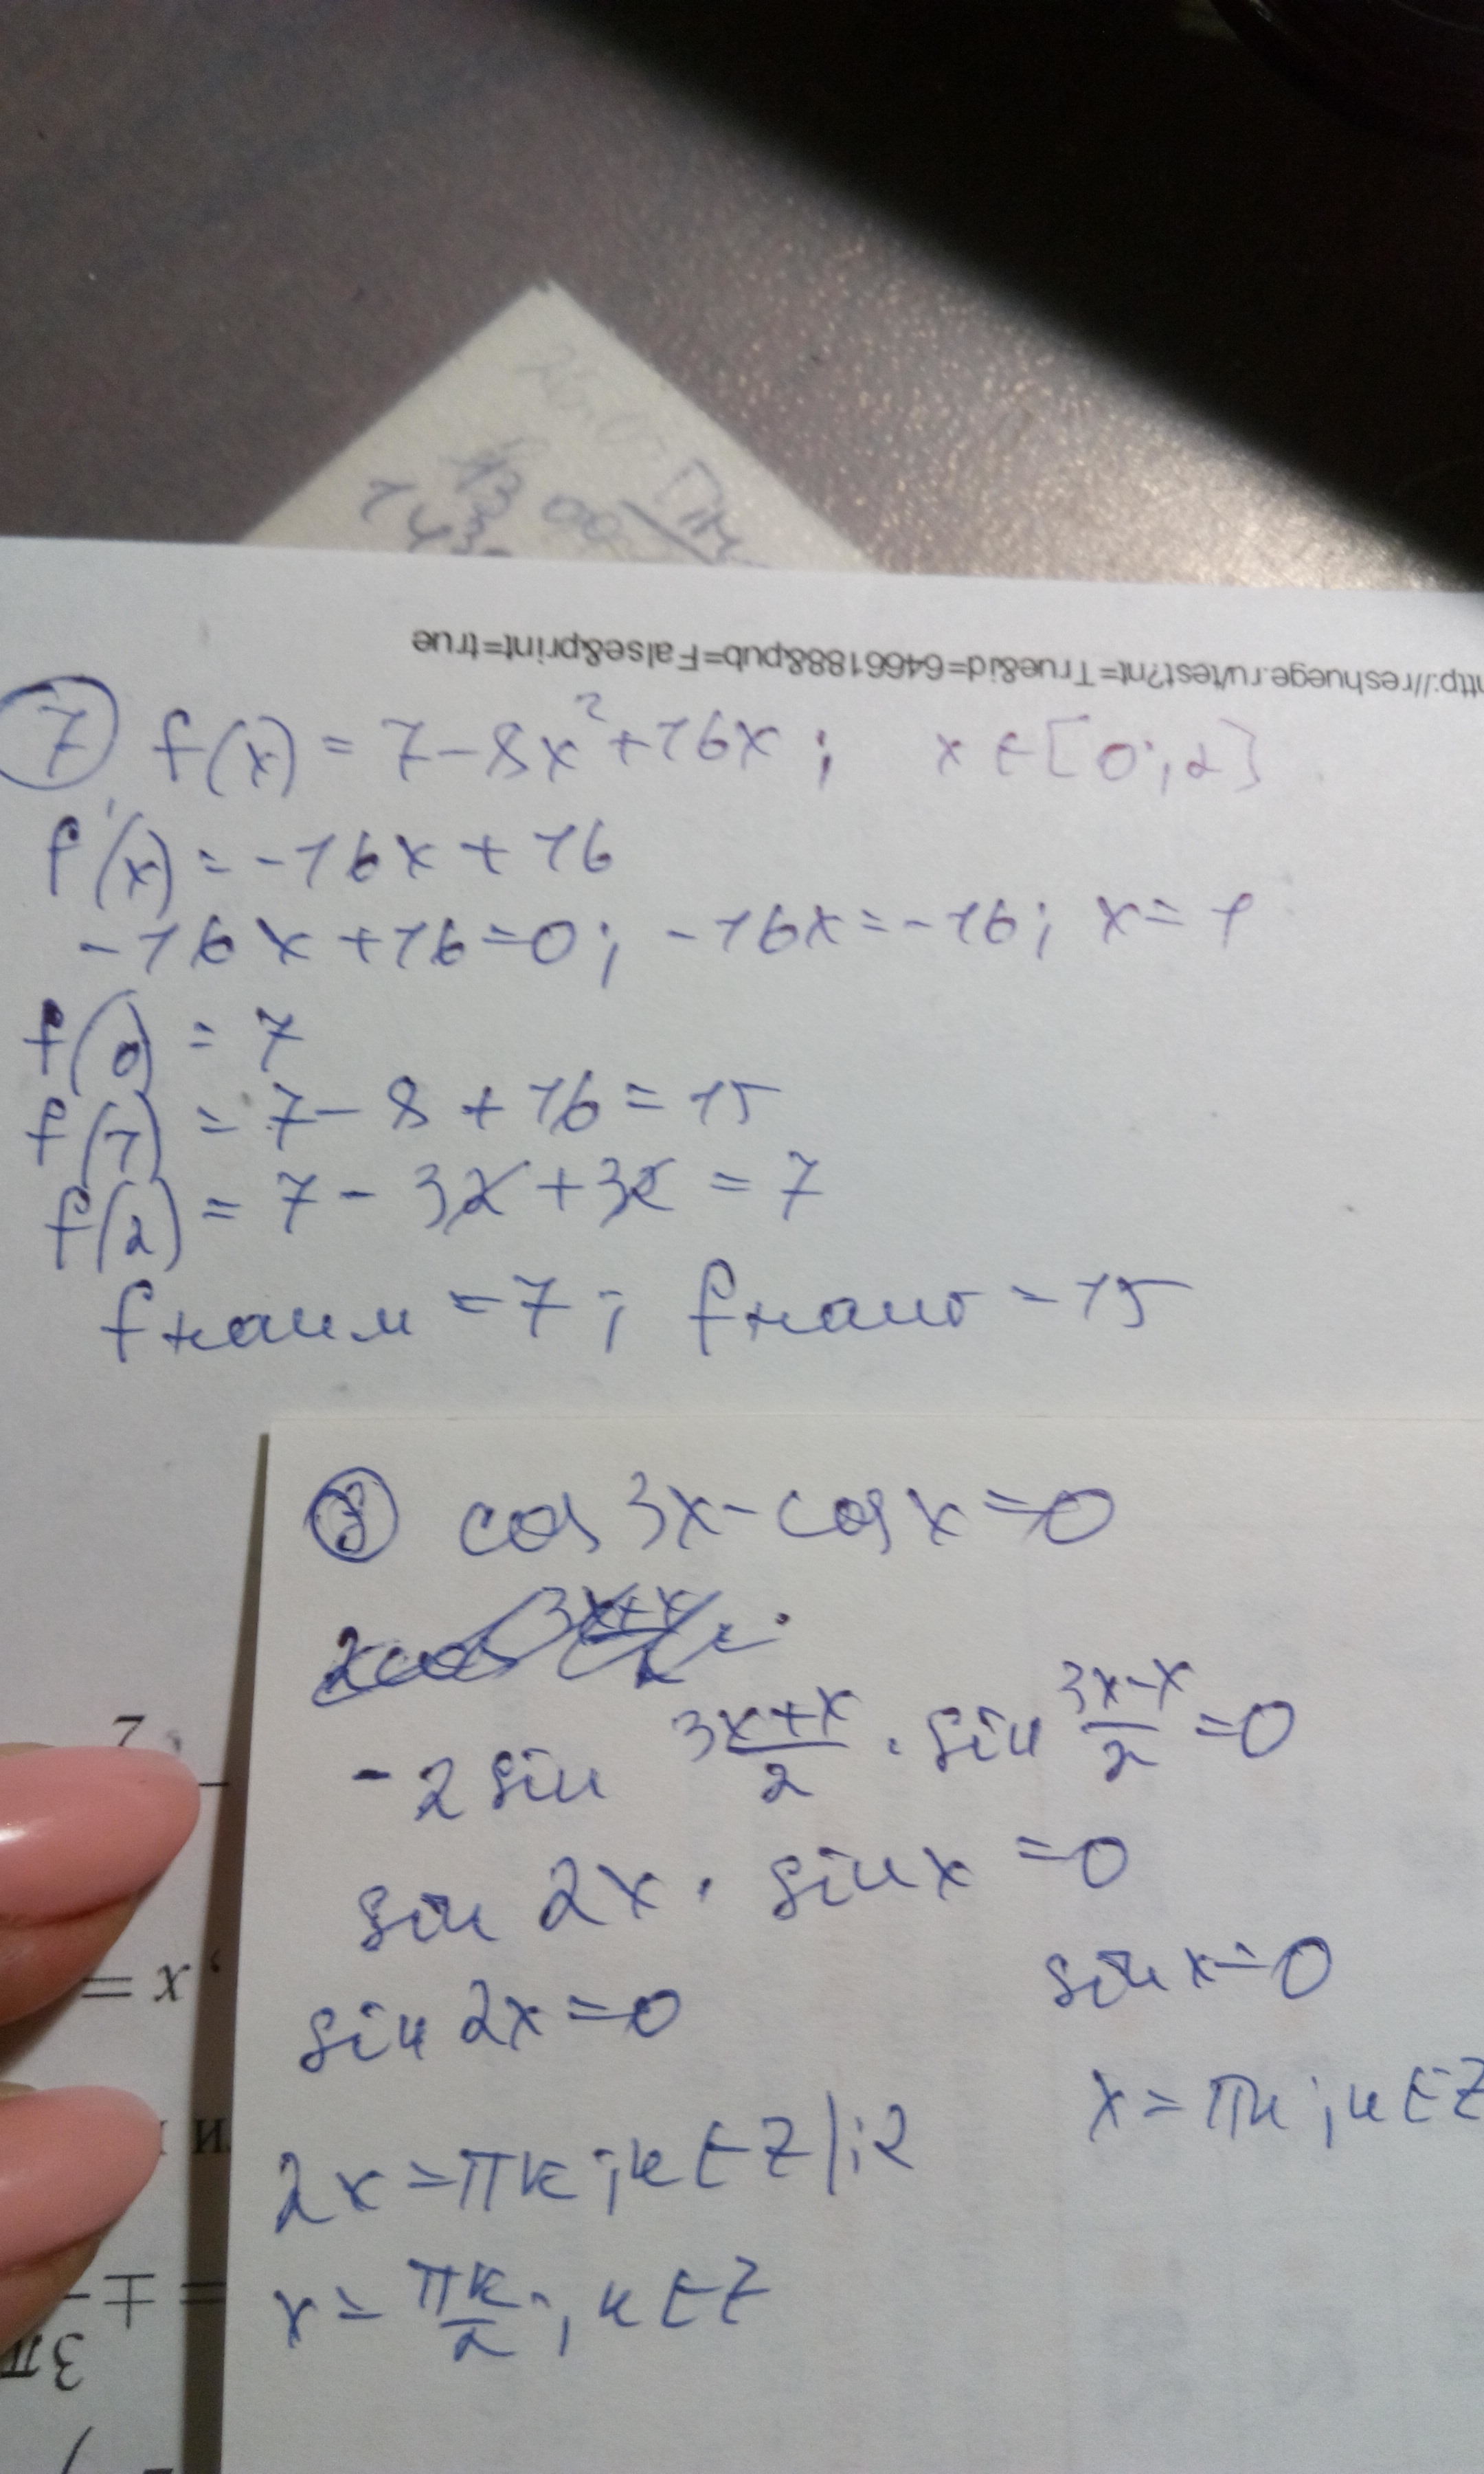 http://reshuege.ru/test?nt=True&id=6466188&pub=False&print=true
7 f(x) = 7-8x²+16x ; x ∈ [0;2]
f'(x) = -16x + 16
-16x+16=0; -16x=-16; x=1
f(0) = 7
f(1) = 7-8+16=15
f(2) = 7-32+32=7
fнаим = 7; fнаиб = 15
8 cos 3x - cos x = 0
-2 sin (3x+x)/2 · sin (3x-x)/2 = 0
sin 2x · sin x = 0
sin 2x = 0 sin x = 0
2x = πк; к ∈ Z |:2 x = πк; к ∈ Z
x = πк/2; к ∈ Z